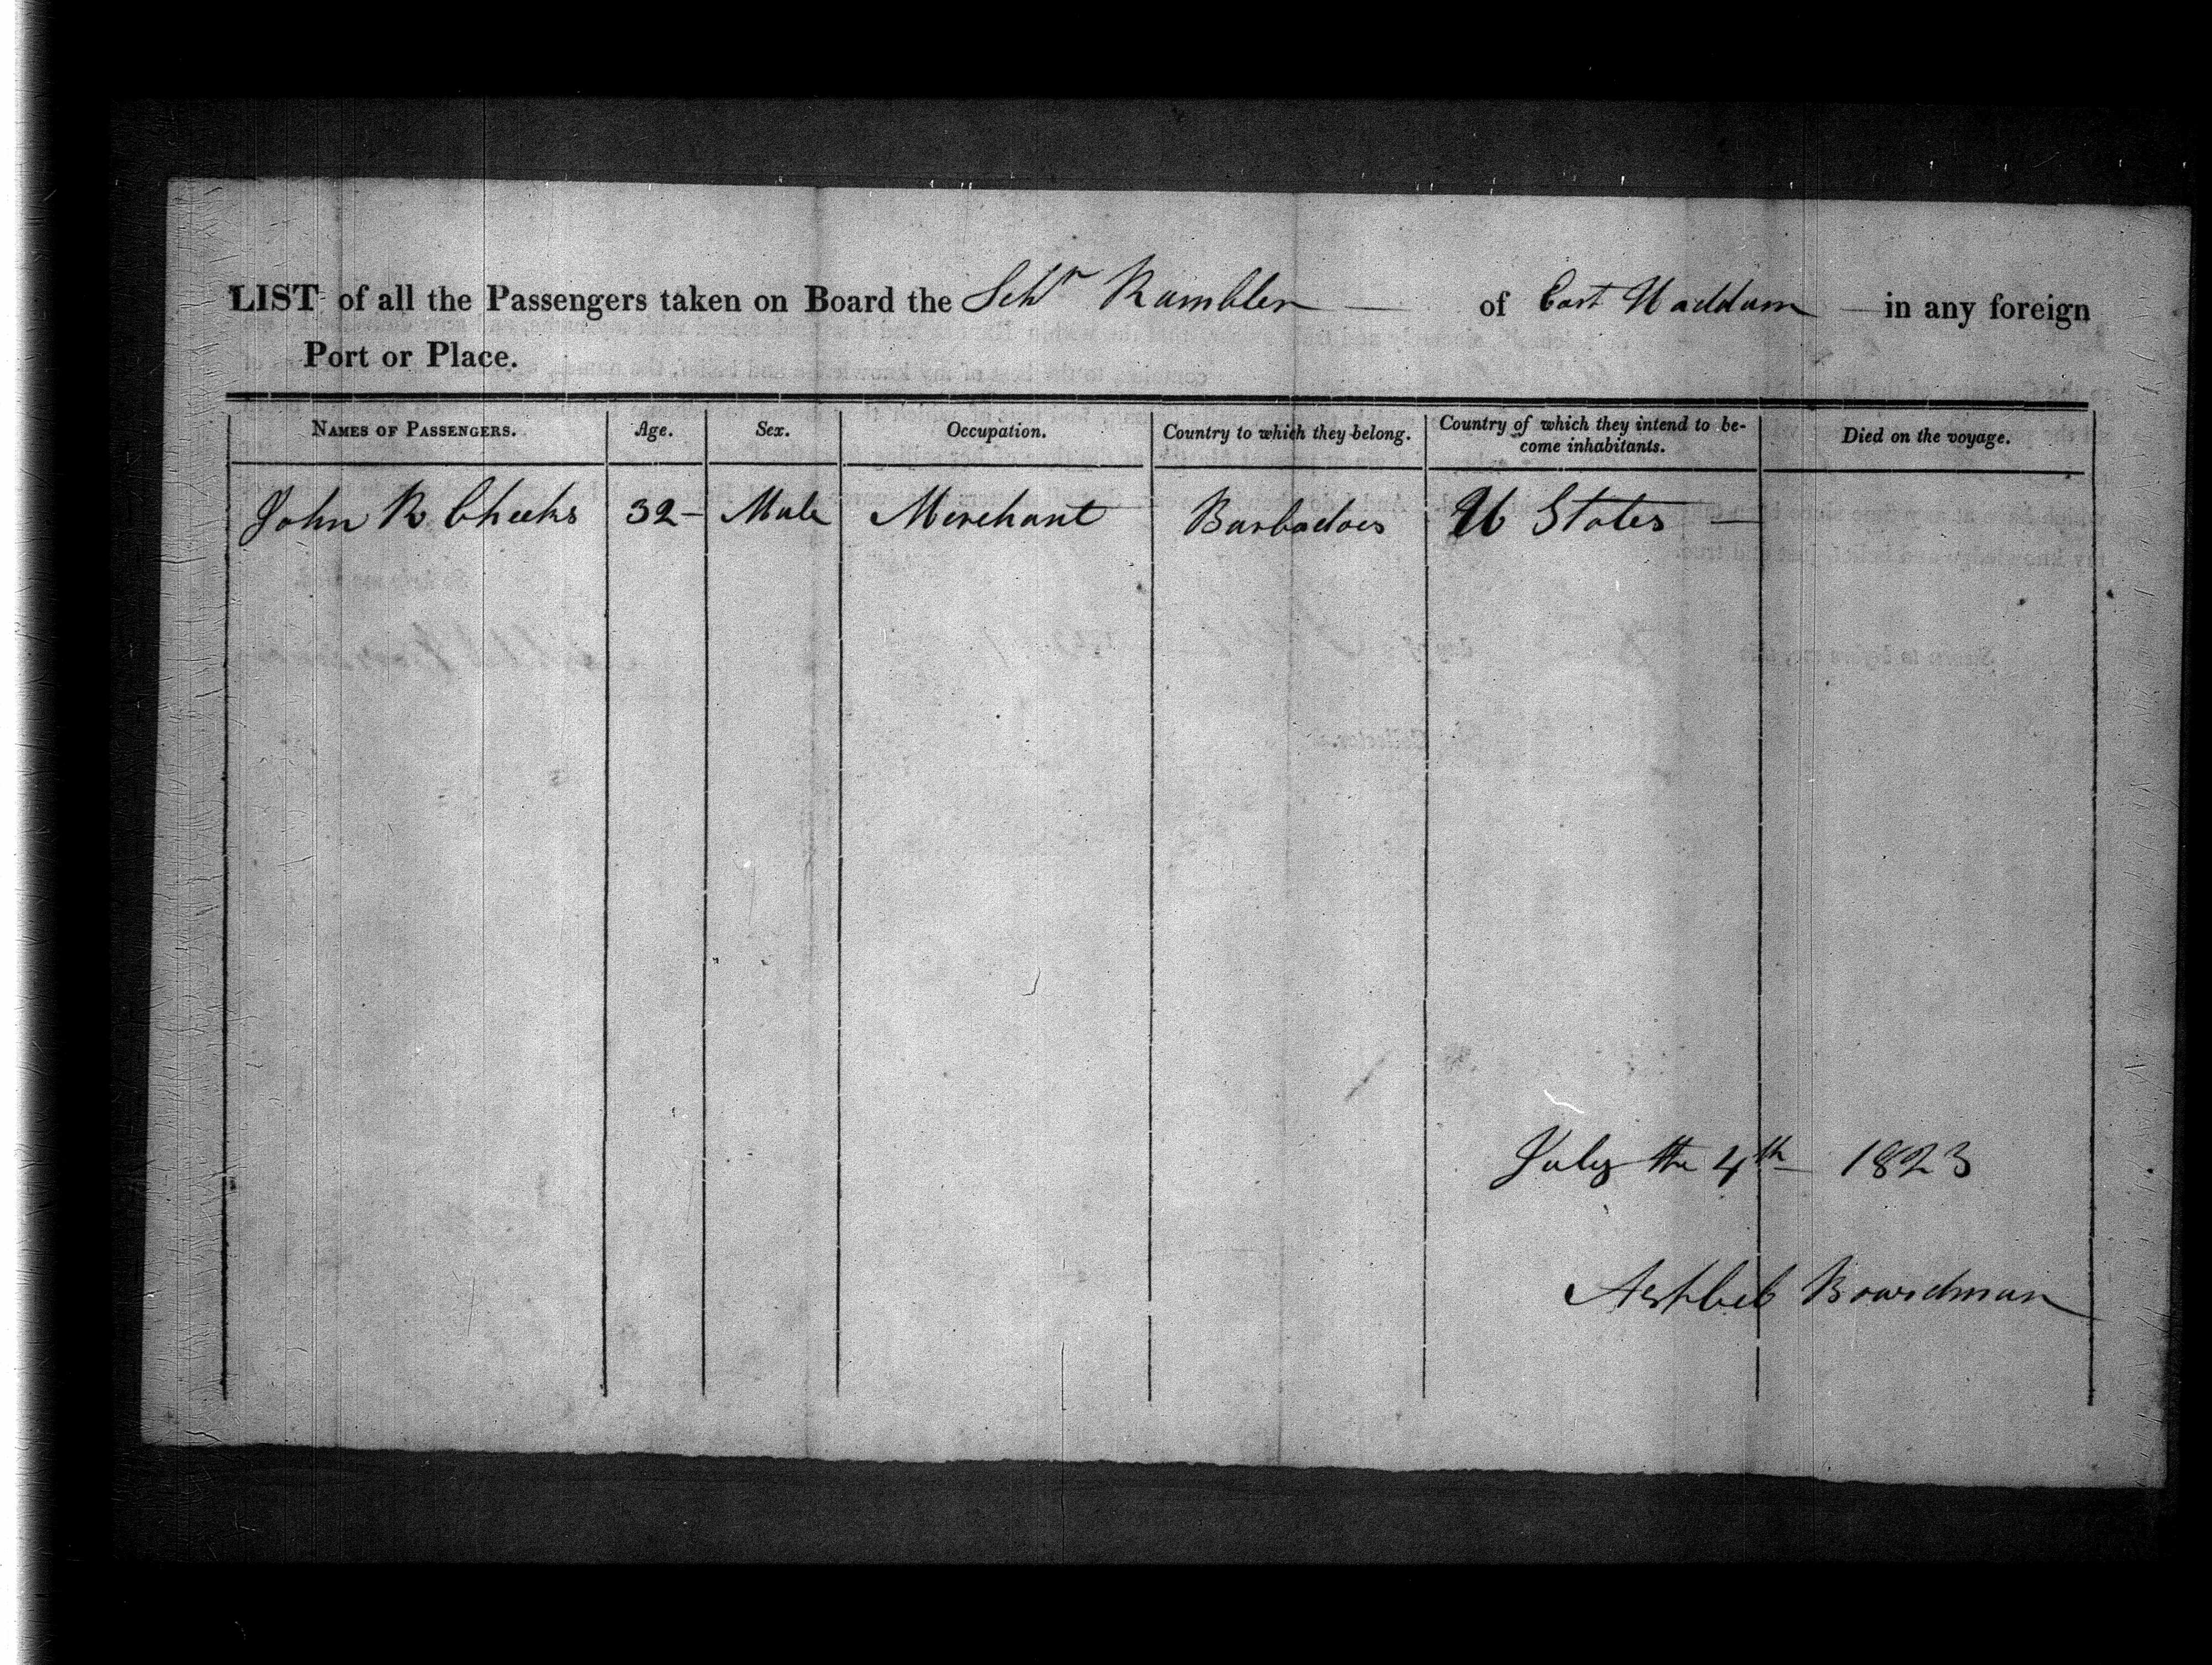 LIST of all the Passengers taken on Board the Schr Rambler — of East Haddam — in any foreign
Port or Place.
NAMES OF PASSENGERS. Age. Sex. Occupation. Country to which they belong. Country of which they intend to be-
come inhabitants. Died on the voyage.
John R Cheeks 32 – Male Merchant Barbadoes U States —
July the 4th 1823
Ashbel Boardman